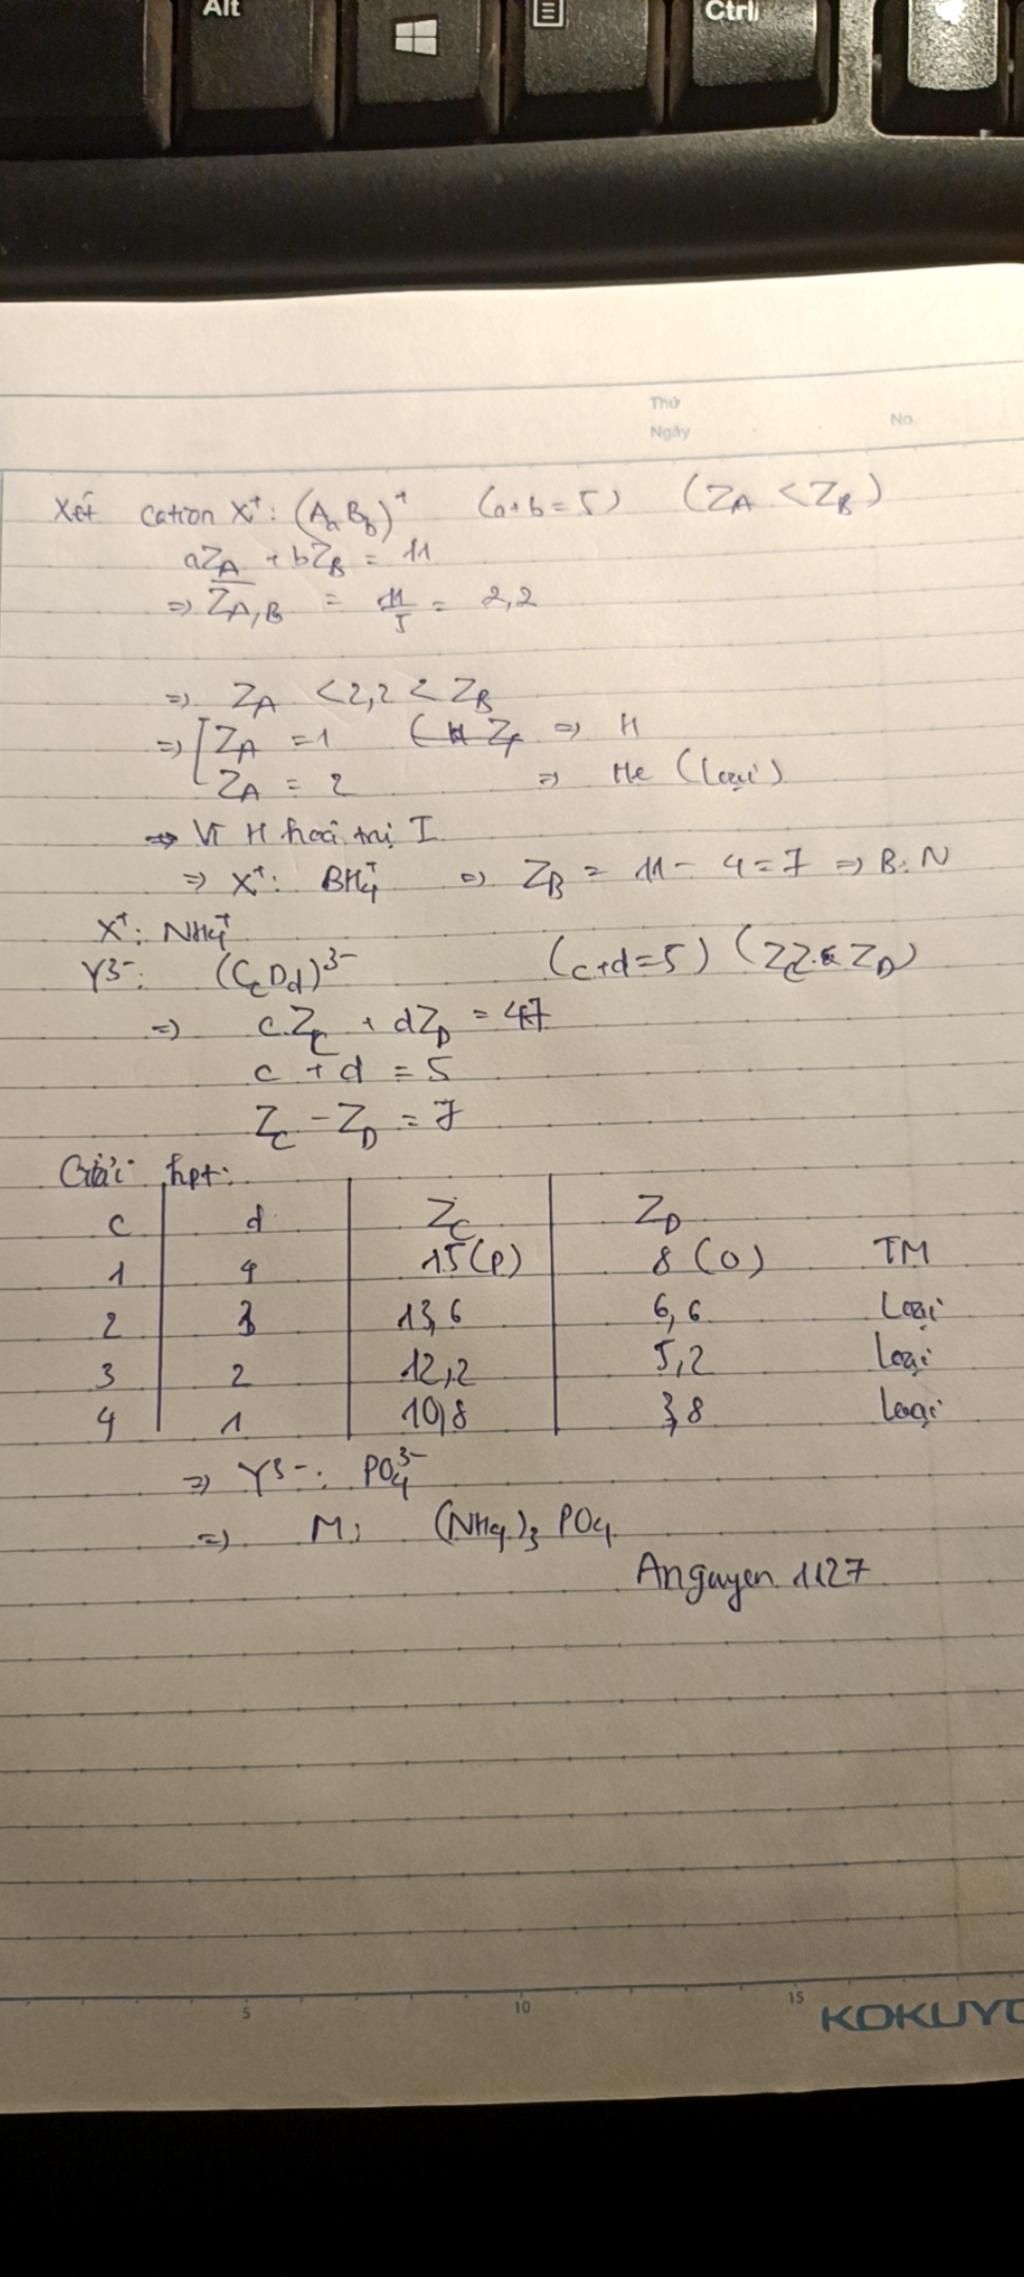 Alt
Ctrl
Thứ
Ngày
No.
Xét cation X⁺: (AₐB_b)⁺ (a+b=5) (Z_A < Z_B)
aZ_A + bZ_B = 11
=> Z̅_A,B = 11/5 = 2,2
=> Z_A < 2,2 < Z_B
=> [ Z_A = 1 => H
Z_A = 2 => He (loại)
=> Vì H hoá trị I
=> X⁺: BH₄⁺ => Z_B = 11 - 4 = 7 => B: N
X⁺: NH₄⁺
Y³⁻: (C_cD_d)³⁻ (c+d=5) (Z_C Z_D)
=> cZ_C + dZ_D = 47
c + d = 5
Z_C - Z_D = 7
Giải hpt:
c d Z_C Z_D
1 4 15(P) 8(O) TM
2 3 13,6 6,6 Loại
3 2 12,2 5,2 Loại
4 1 10,8 3,8 Loại
=> Y³⁻: PO₄³⁻
=> M: (NH₄)₃PO₄
Anguyen 1127
5 10 15
KOKUYO